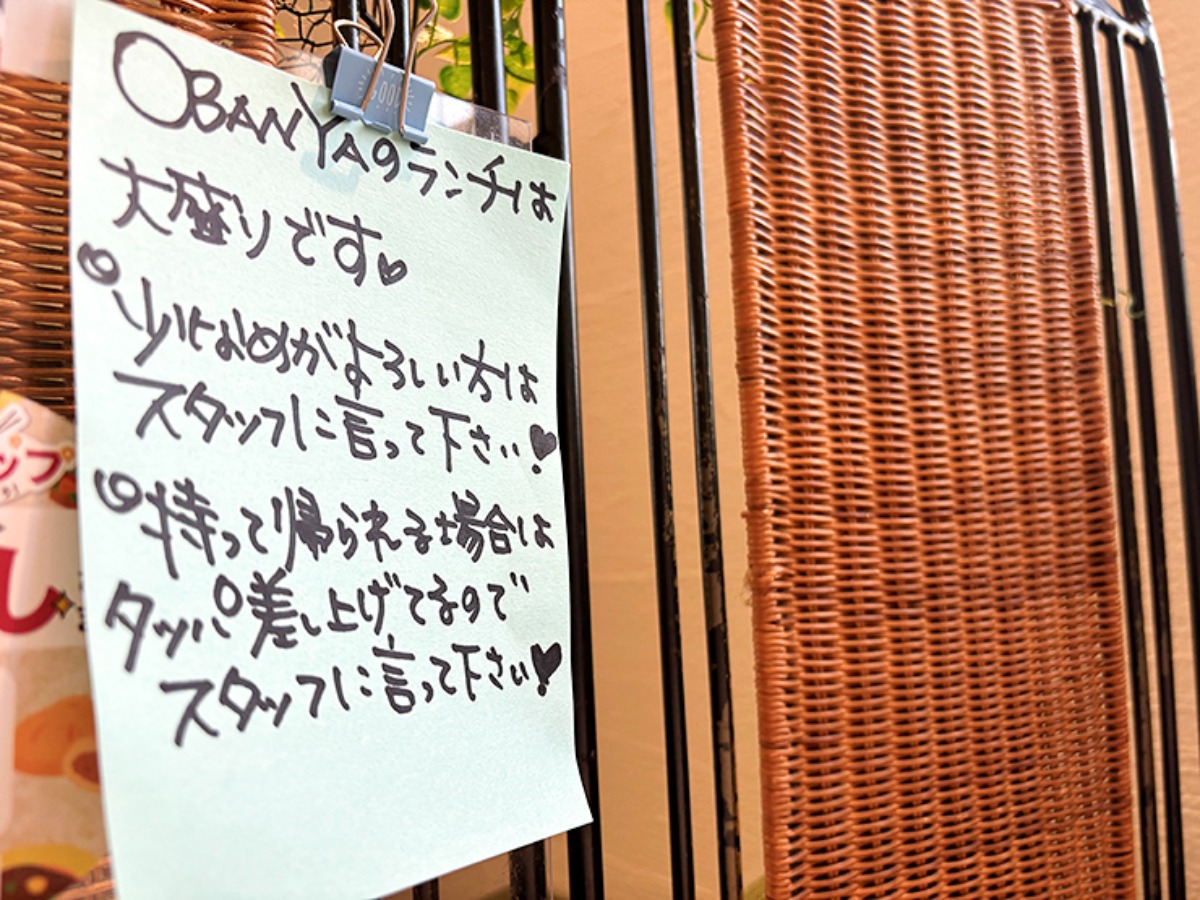 OBANYAのランチは
大盛りです♡
少なめがよろしい方は
スタッフに言って下さい♥
持って帰られる場合は
タッパ差し上げてるので
スタッフに言って下さい♥
ップ
し